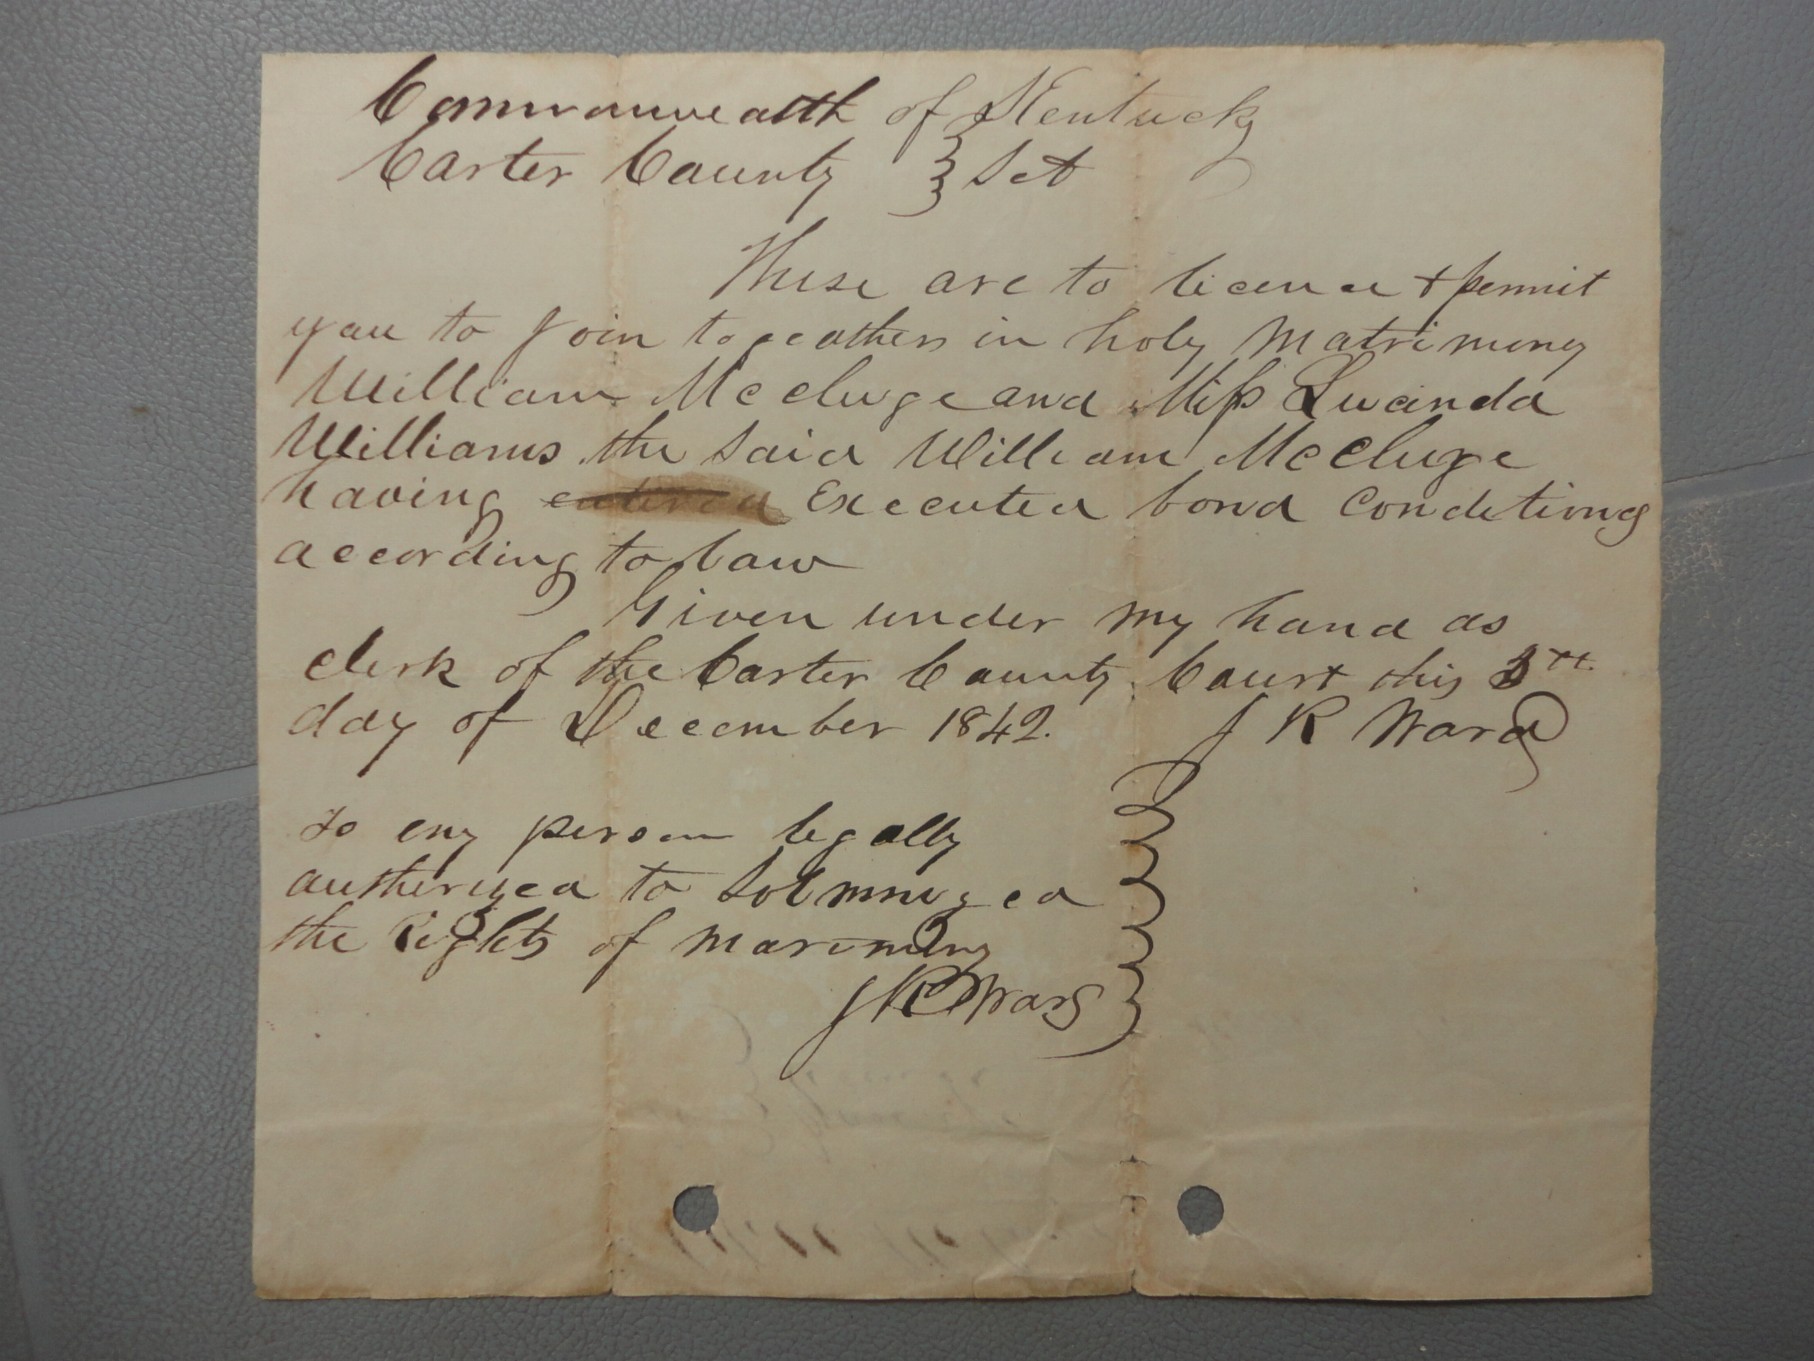 Commonwealth of Kentucky
Carter County Sct
These are to licence + permit
you to Join togeather in holy Matrimony
William Mccluge and Miss Lucinda
Williams the Said William Mccluge
having entered Executed bond Conditiong
according to law
Given under my hand as
Clerk of the Carter County Court this
day of December 1842. J R Ward
To eny person legally
autherized to Solmnized
the Rights of Marimony
J R Ward